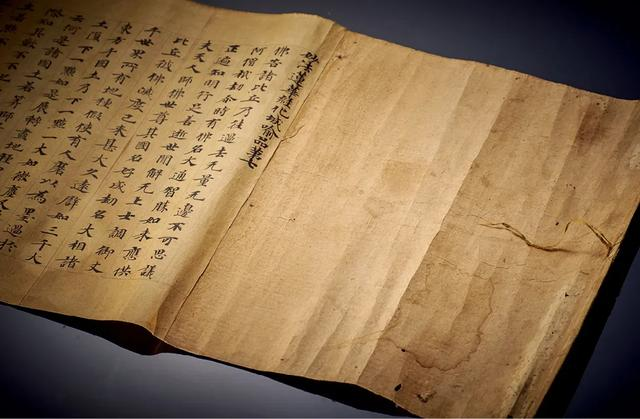 妙法蓮華經化城喻品第七
佛告諸比丘乃往過去无量无邊不可思議
阿僧祇劫尒時有佛名大通智勝如来應供
正遍知明行足善逝世間解无上士調御丈
夫天人師佛世尊其國名好成劫名大相諸
比丘彼佛滅度已来甚大久遠譬如三千大
千世界所有地種假使有人磨以為墨過於
東方千國土乃下一點大如微塵又
土復下一點如是展轉盡地種
云何是諸國土若筭師
際知其數不不也
土若點不